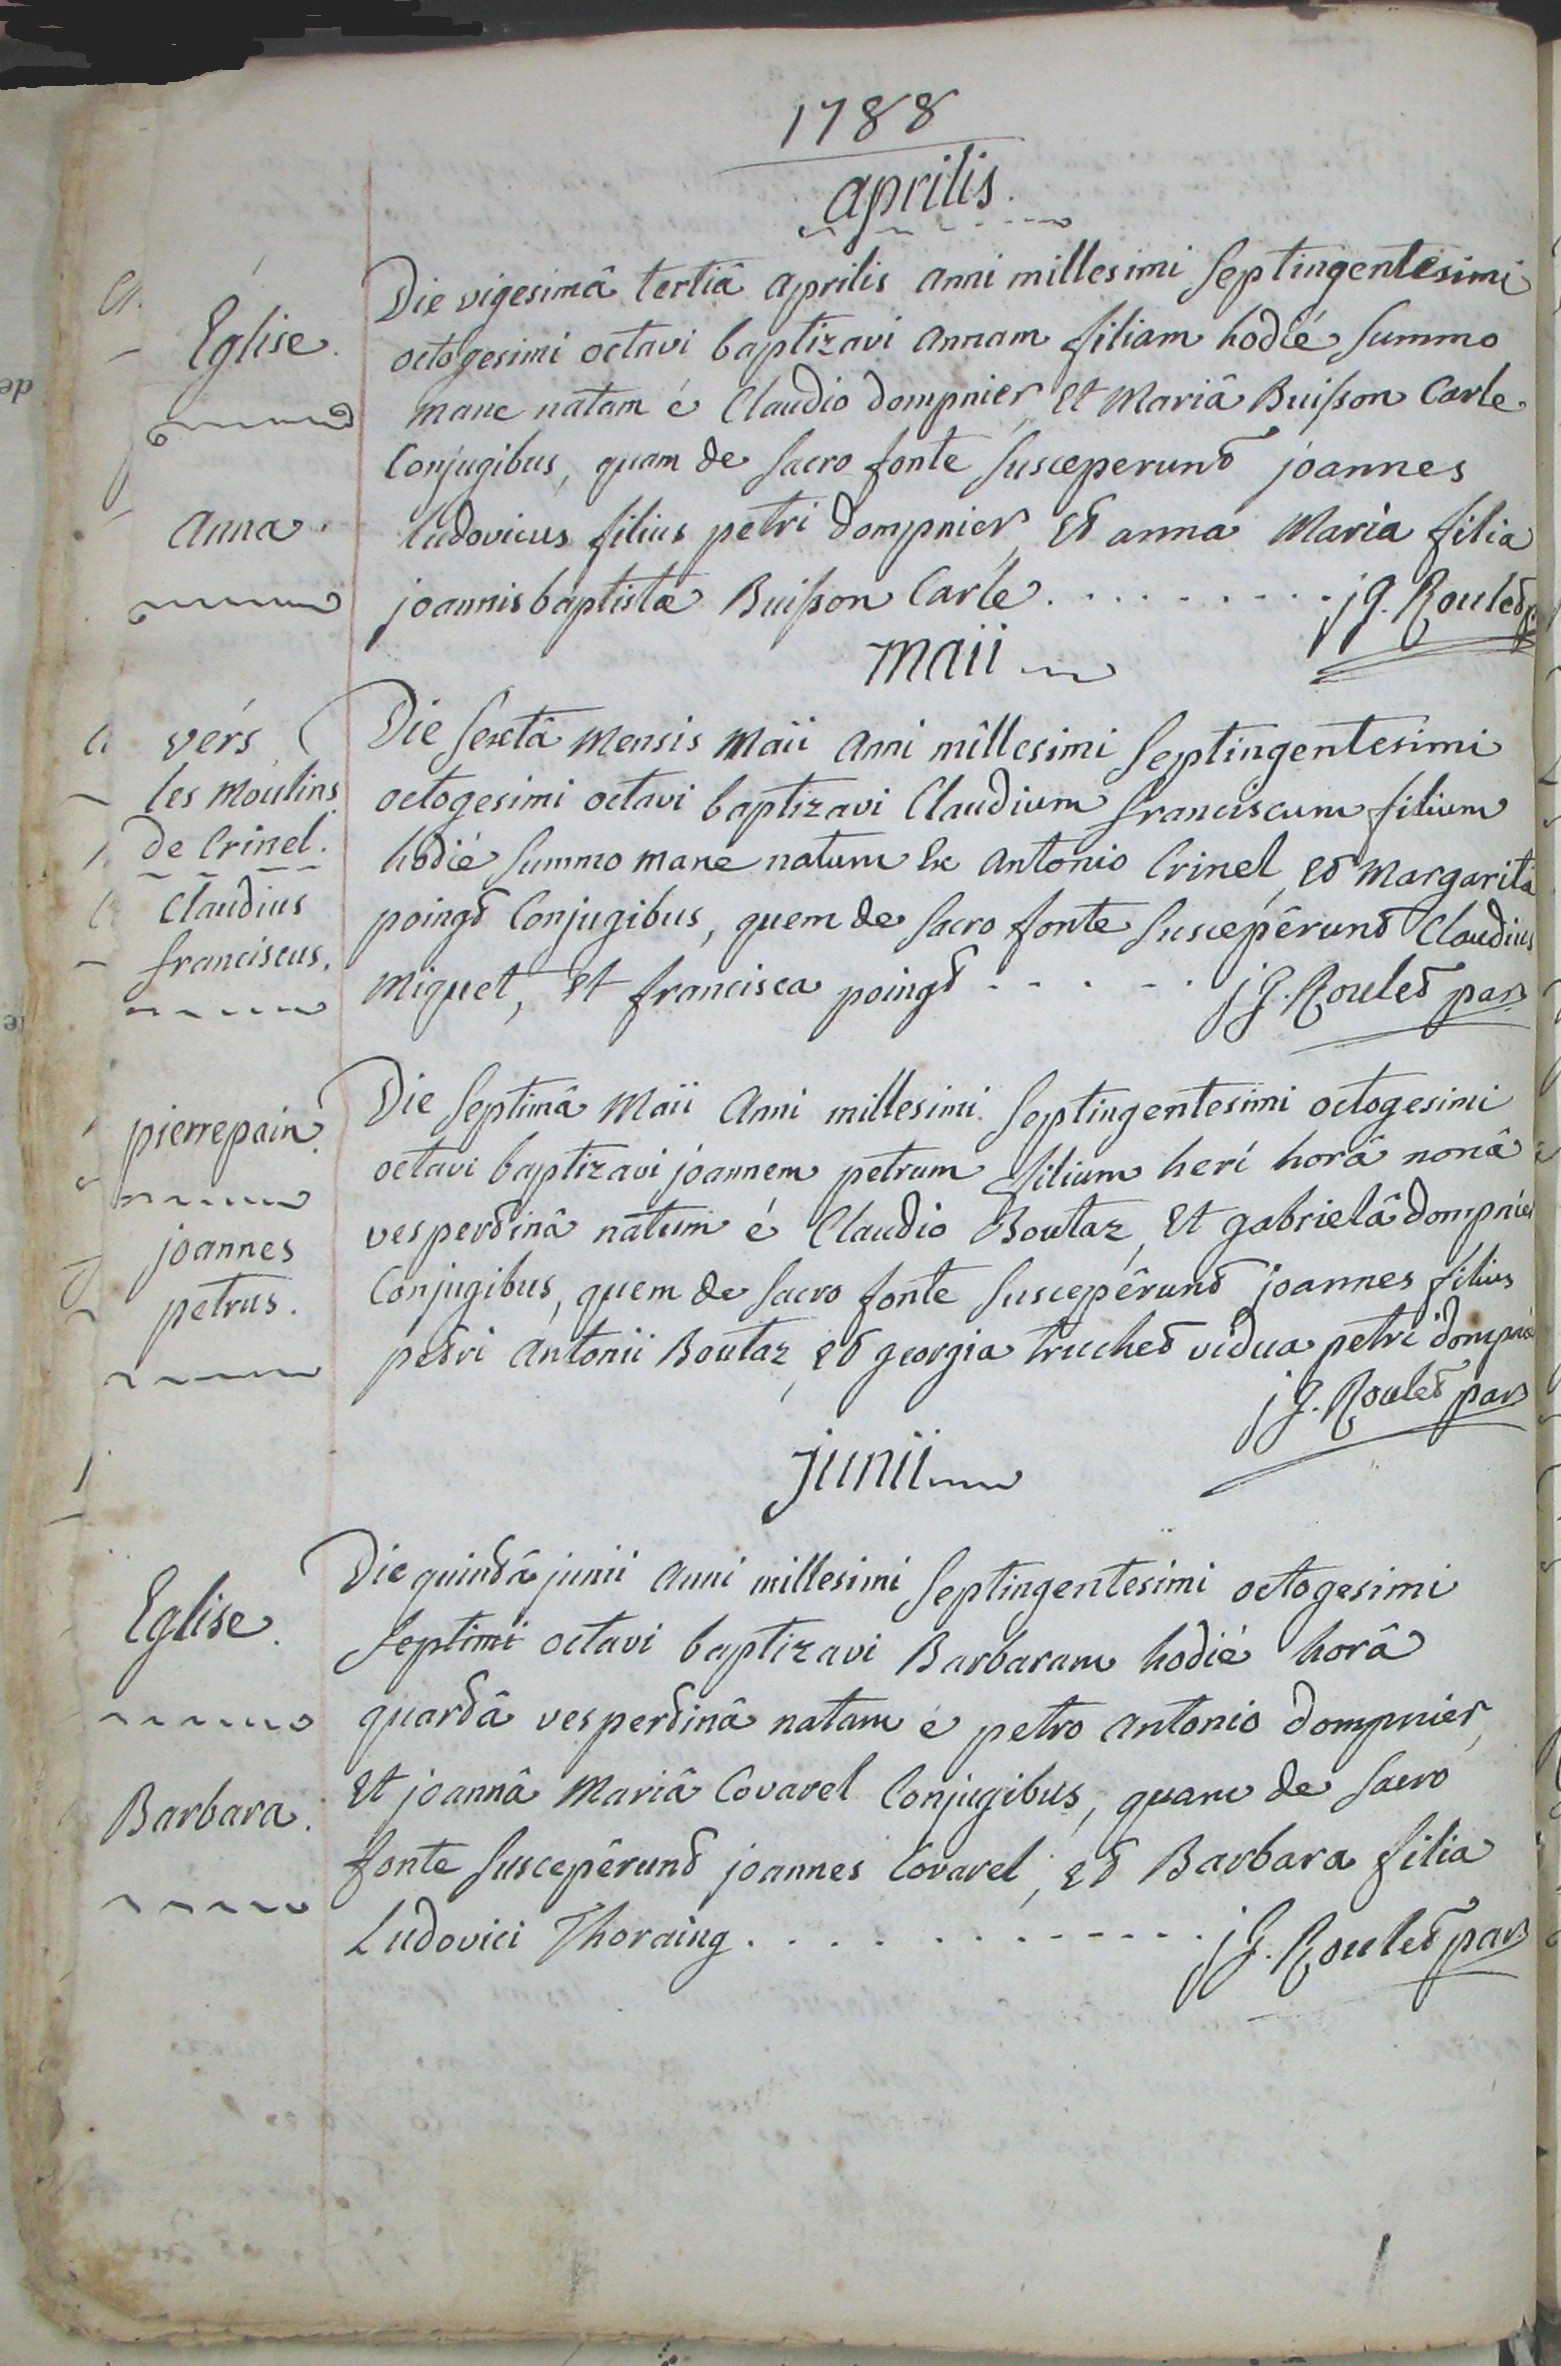 1788
aprilis.
Église.
Anna.
Die vigesimâ tertiâ aprilis anni millesimi septingentesimi
octogesimi octavi baptizavi annam filiam hodié summo
mane natam é Claudio dompnier, et Mariâ Buisson Carle
Conjugibus, quam de sacro fonte susceperunt joannes
ludovicus filius petri dompnier, et anna Maria filia
joannis baptistæ Buisson Carle . . . . . . . . . j G. Roulet p.
maii
vérs
les moulins
de Crinel.
Claudius
franciscus.
Die sextâ mensis maii anni millesimi septingentesimi
octogesimi octavi baptizavi Claudium franciscum filium
hodié summo mane natum ex antonio Crinel, et Margaritâ
poingt Conjugibus, quem de sacro fonte suscepêrunt Claudius
miquel, et francisca poingt - - . - . j G. Roulet par
pierrepain.
joannes
petrus.
Die septimâ maii anni millesimi septingentesimi octogesimi
octavi baptizavi joannem petrum filium heri horâ nonâ
vespertinâ natum é Claudio Boutaz, et gabrielâ dompnier
Conjugibus, quem de sacro fonte suscepêrunt joannes filius
petri antonii Boutaz, et georgia truchet vidua petri dompnié
j G. Roulet par
junii
Eglise.
Barbara.
Die quintâ junii anni millesimi septingentesimi octogesimi
septimi octavi baptizavi Barbaram hodié horâ
quartâ vespertinâ natam é petro antonio dompnier,
et joannâ Mariâ Covarel Conjugibus, quam de sacro
fonte suscepêrunt joannes Covarel, et Barbara filia
Ludovici Thoraing . . . . . . . - - - - . j G. Roulet par